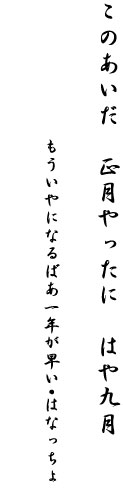 このあいだ　正月やったに　はや九月
もういやになるばあ一年が早い・はなっちょ